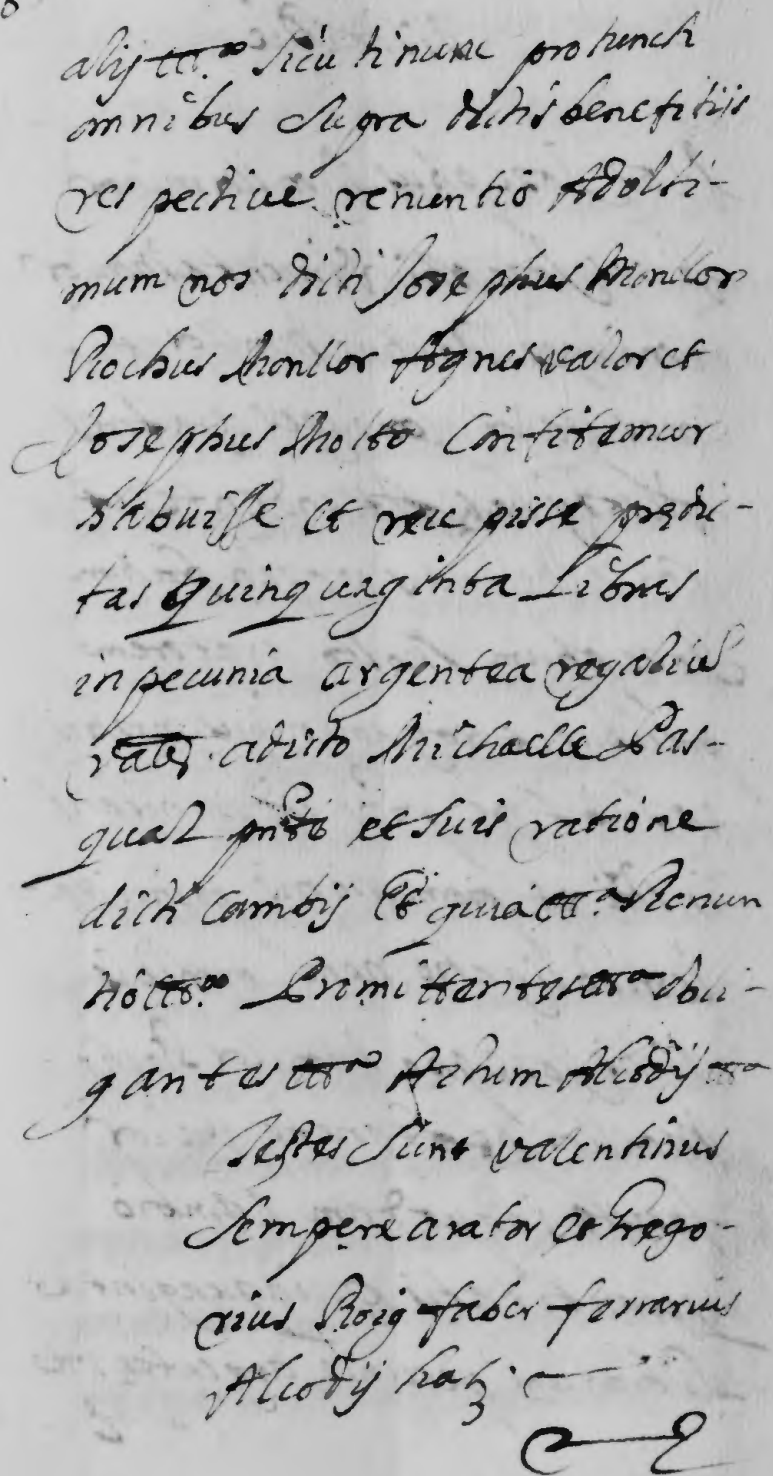 alijs ett.ª sicuti nunc pro tunch
omnibus supra dictis benefitiis
respective renuntio Adolti-
mum nos dicti Josephus Monllor
Rochus Monllor Agnes valor et
Josephus Molto Confitemur
habuisse et recepisse predic-
tas Quinquaginta Libras
in pecunia argentea regalium
vale? a dicto Michaelle Pas-
qual pnti et suis ratione
dicti Cambij Et quia ett.ª Renun
tio ett.ª Promittentes ett.ª obli-
gantes ett.ª Actum Alcodij ett.ª
Testes sunt valentinus
Sempere arator et Grego-
rius Roig faber ferrarius
Alcodij hat?